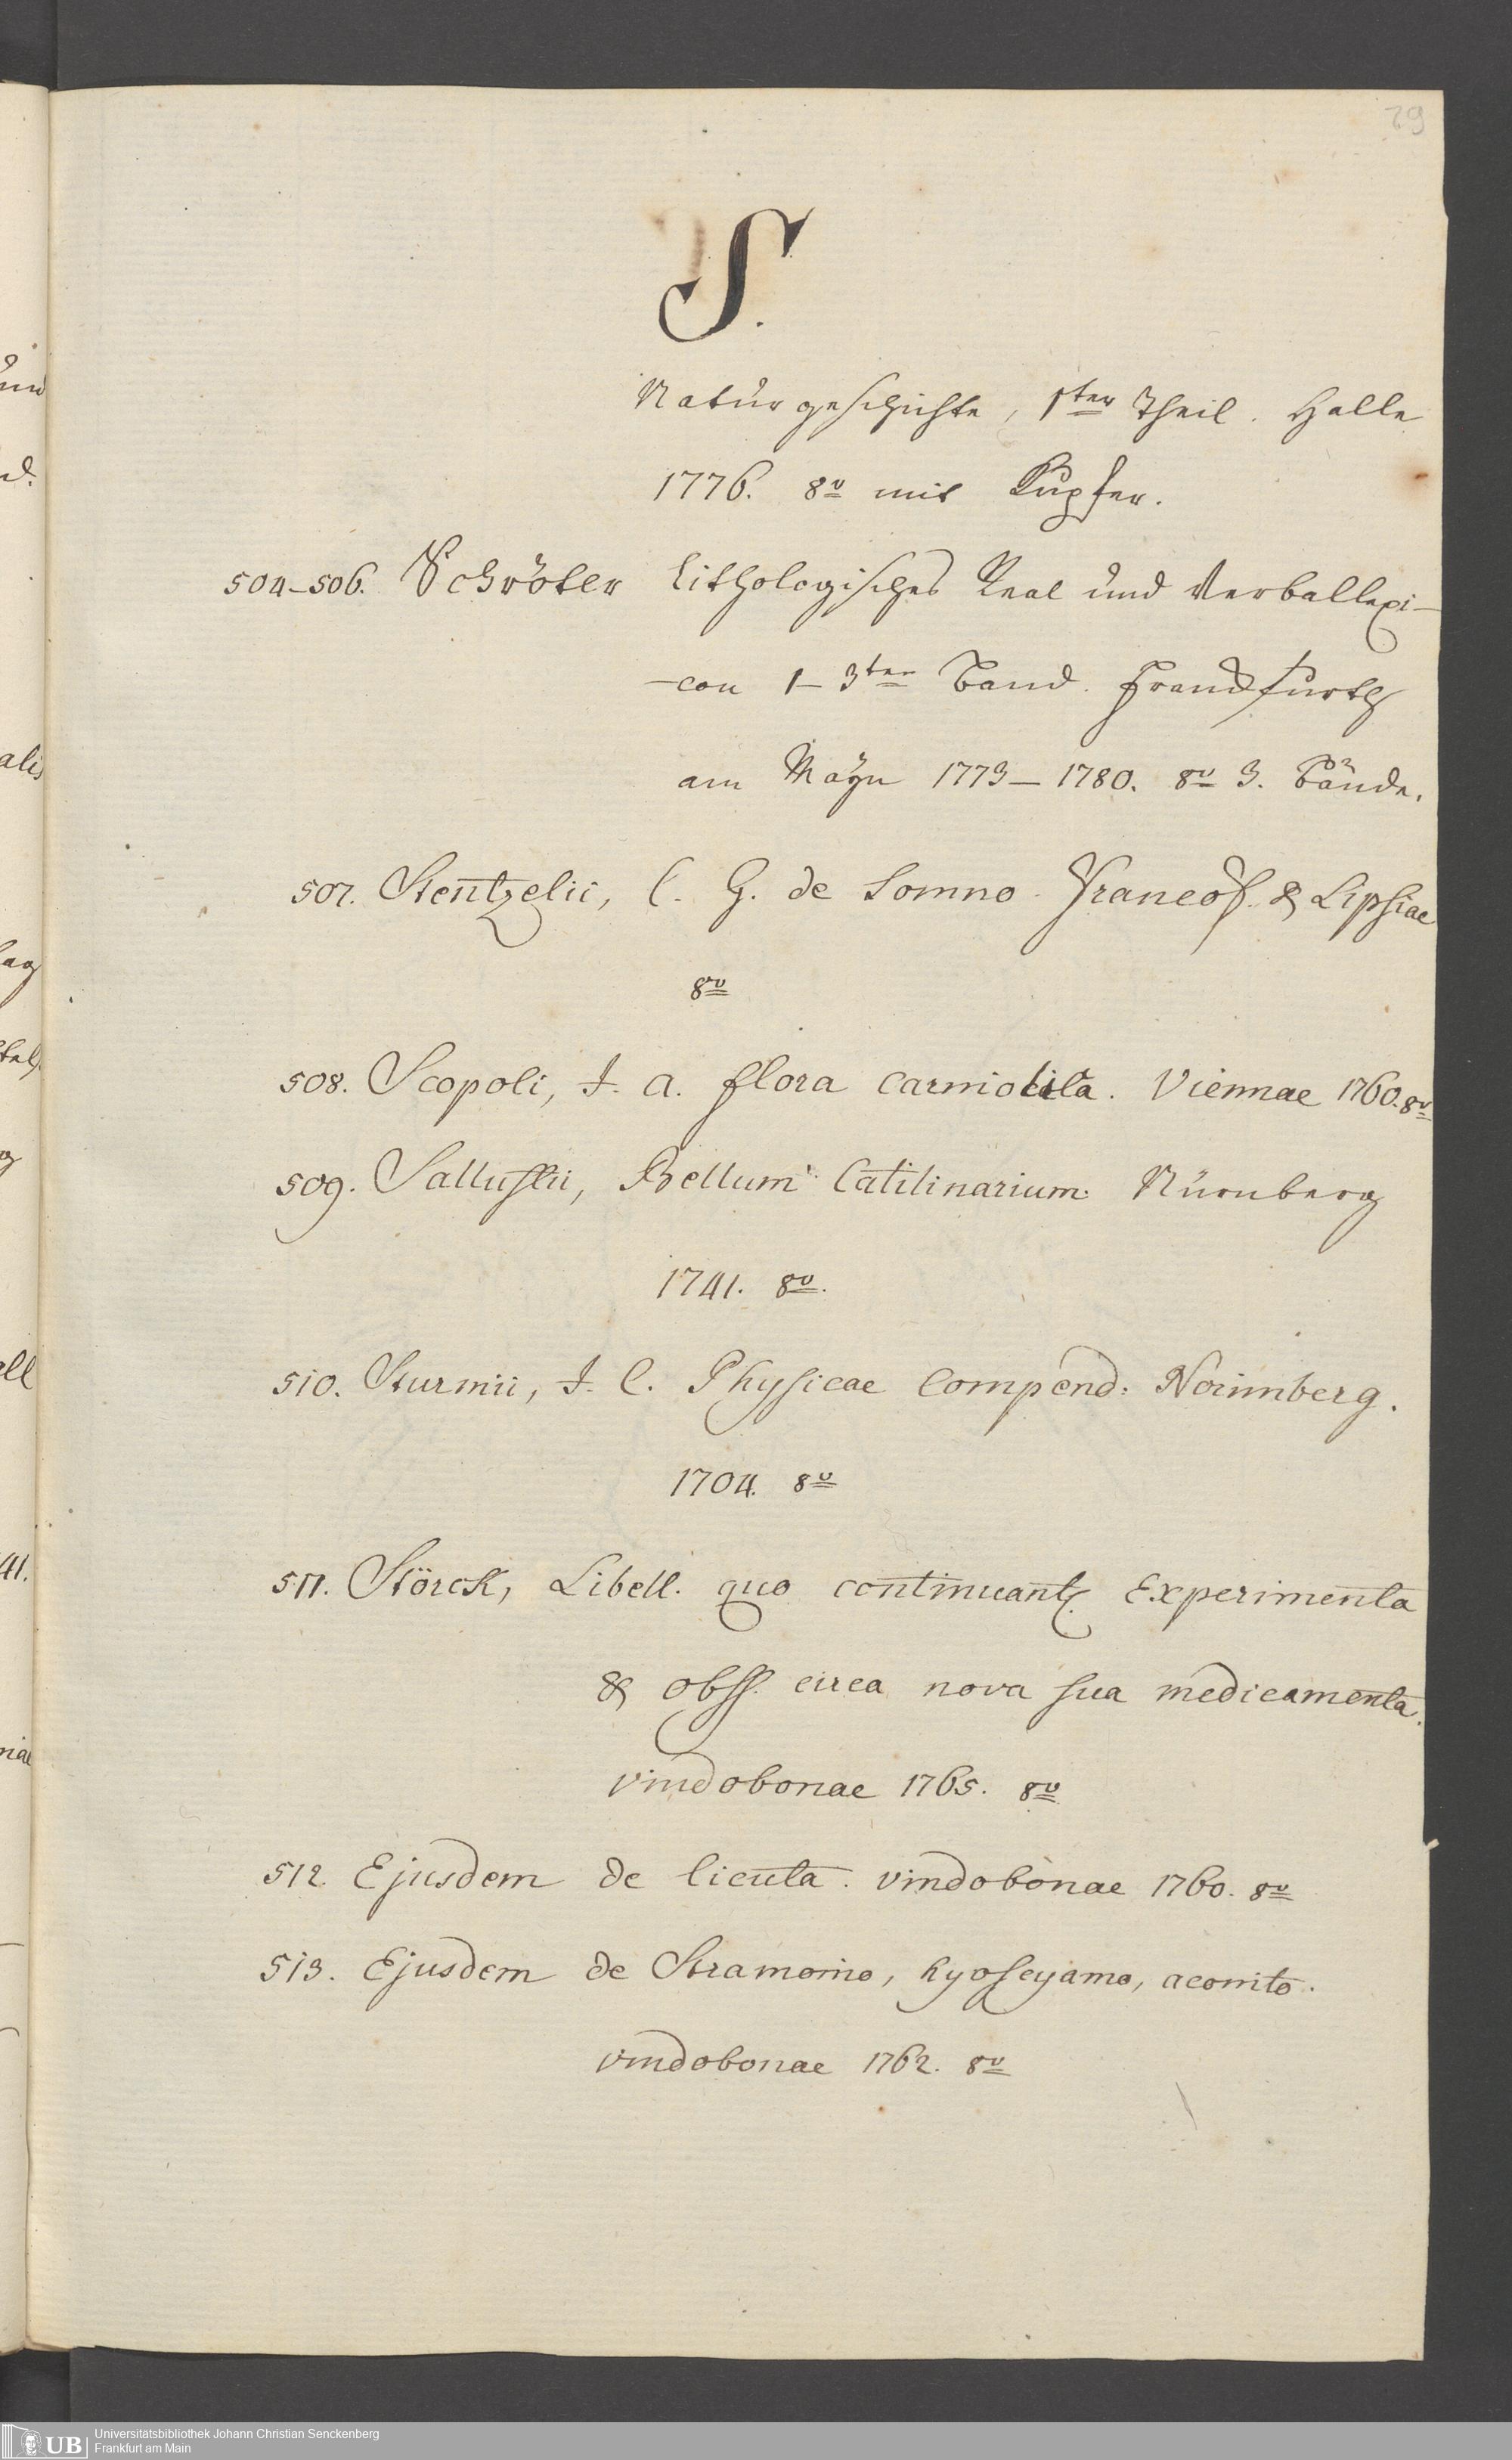 29
S.
Naturgeschichte, 1ter Theil. Halle
1776. 8v mit Kupfer.
504-506. Schröter Lithologisches Real und Verballexi-
-con 1-3ter Band. Franckfurth
am Mayn 1779-1780. 8v 3. Bände.
507. Stentzelii, C. G. de Somno. Francof. & Lipsiae
8v
508. Scopoli, J. A. flora carniolica. Viennae 1760. 8v
509. Sallustii, Bellum Catilinarium. Nürnberg
1741. 8v.
510. Sturmii, J. C. Physicae Compend: Norimberg.
1704. 8v
511. Störck, Libell. quo continuant. Experimenta
& obss. circa nova sua medicamenta.
vindobonae 1765. 8v
512. Ejusdem de Cicuta. vindobonae 1760. 8v
513. Ejusdem de Stramonio, hyoscyamo, aconito.
vindobonae 1762. 8v
UB
Universitätsbibliothek Johann Christian Senckenberg
Frankfurt am Main